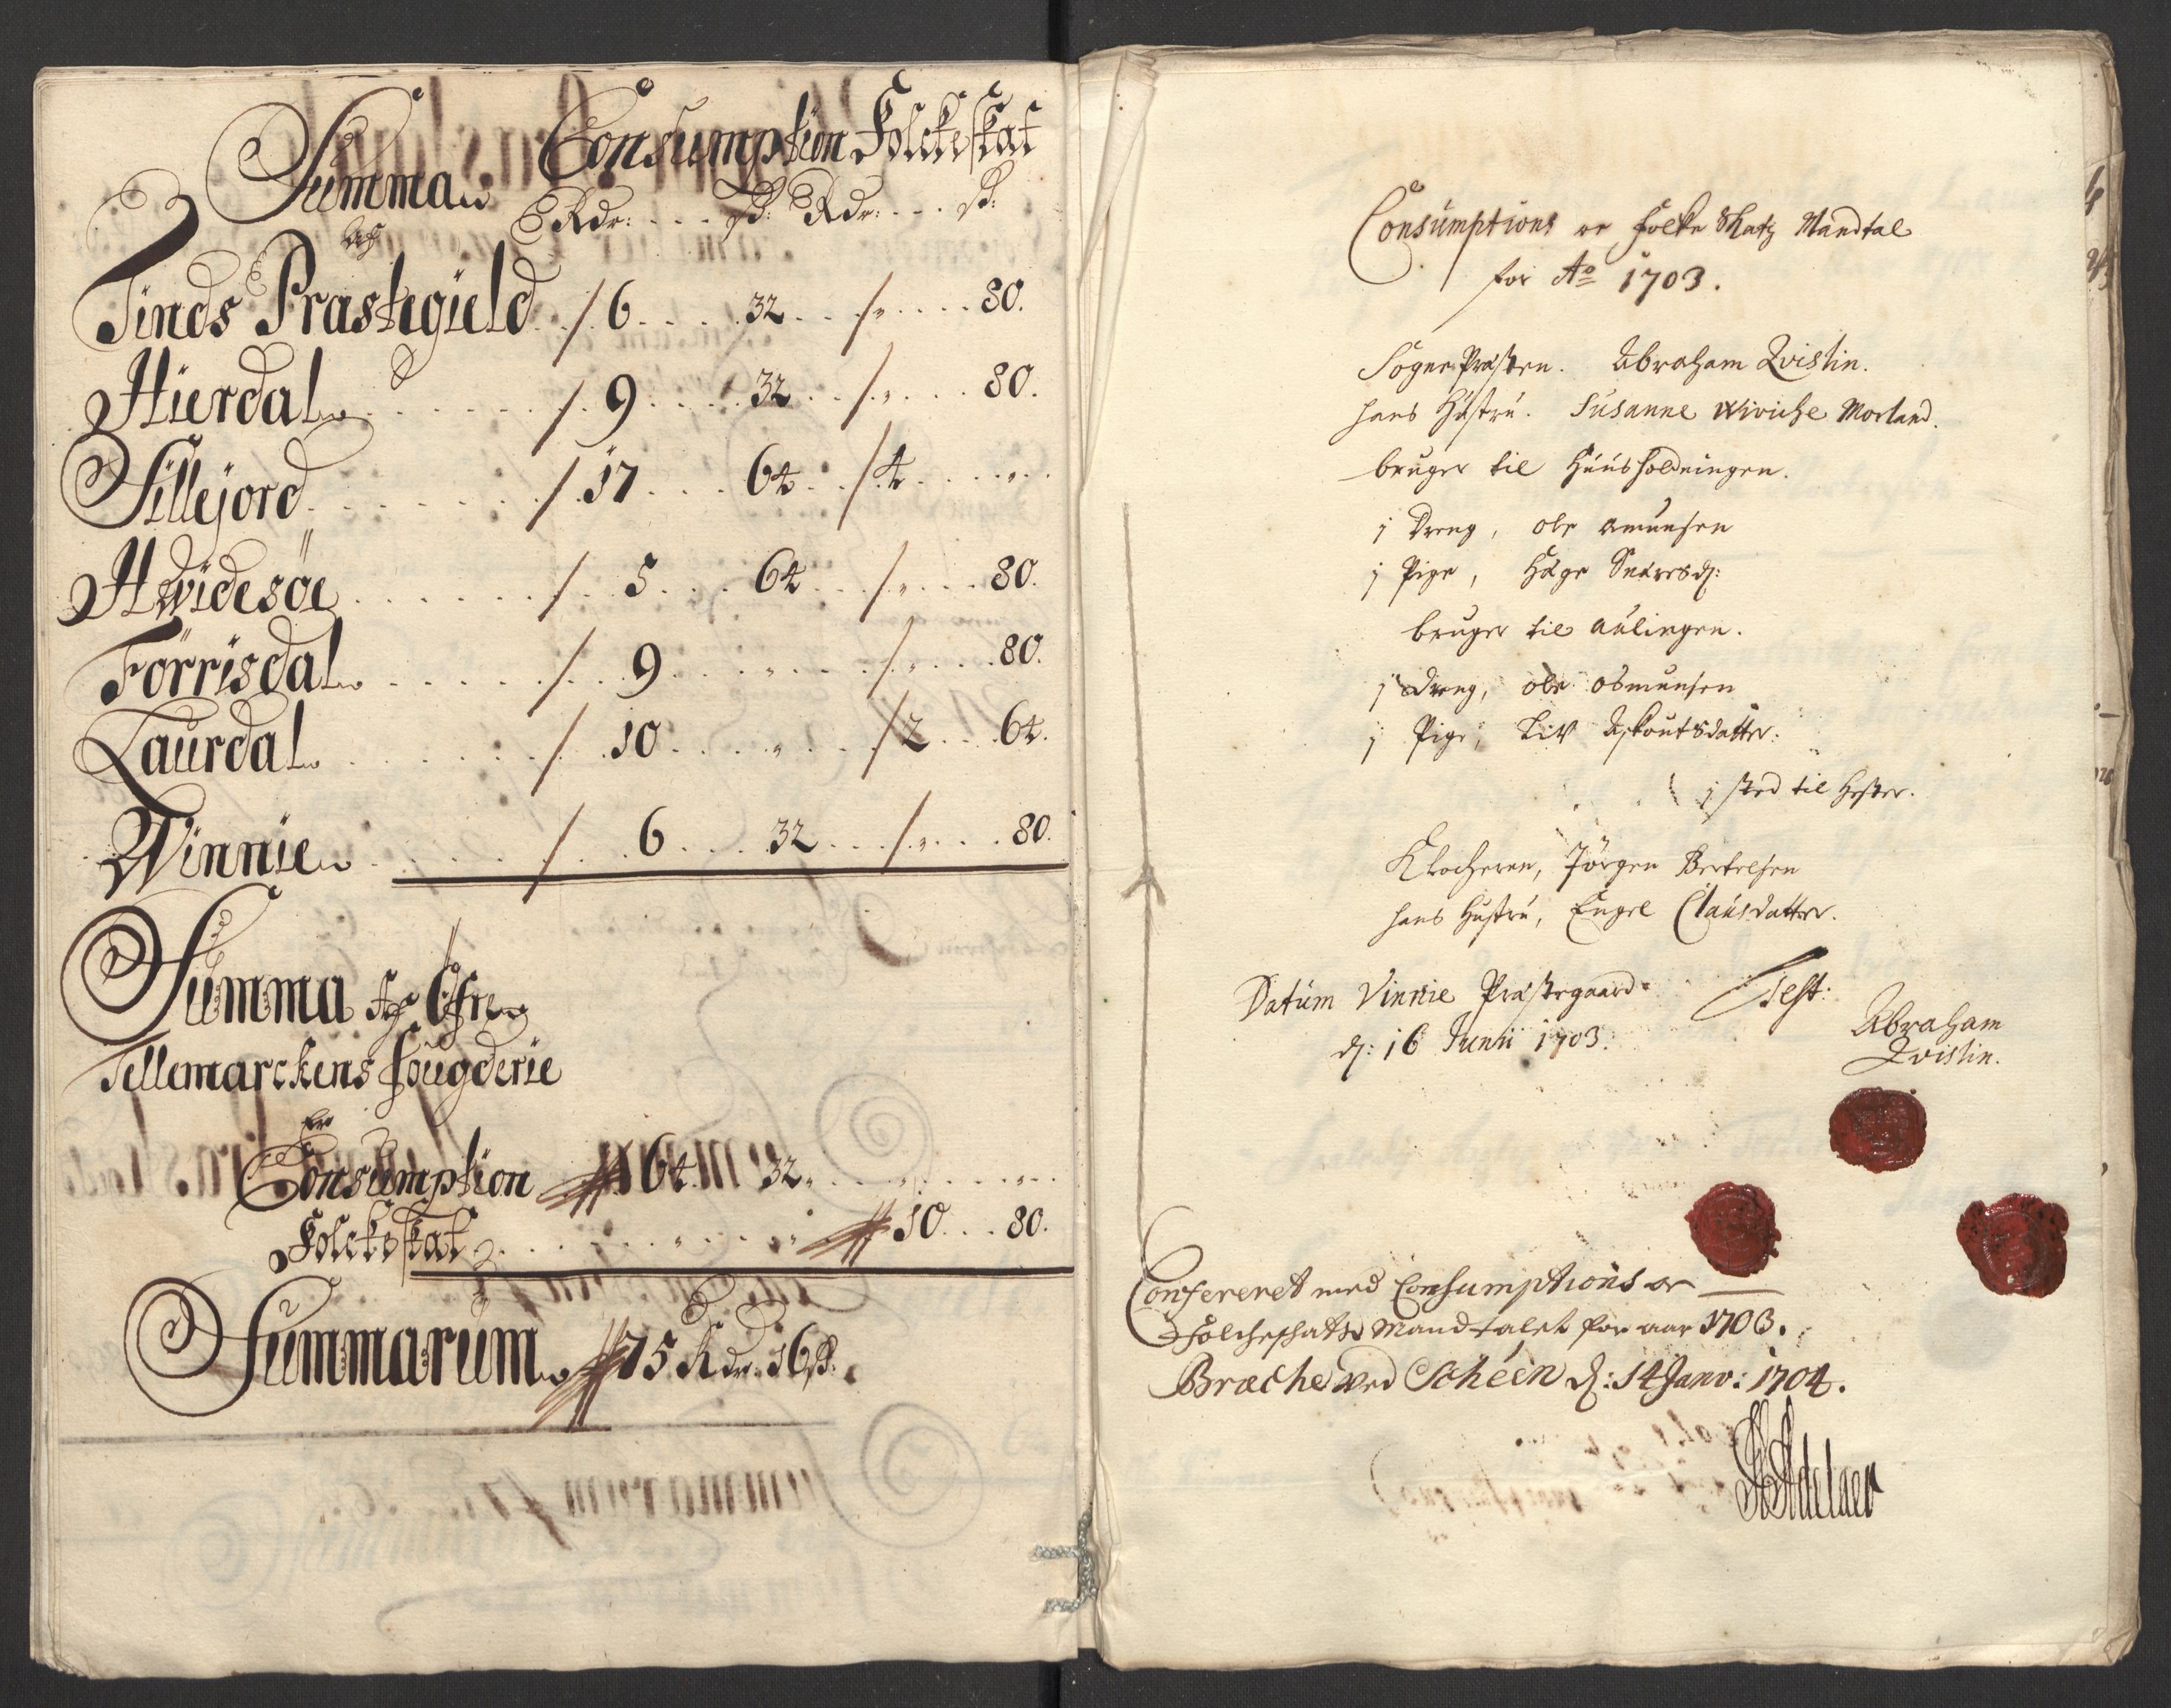 Consumption Folckeskat
Summa
Rdr: ß: Rdr: ß:
Af
Tinds Præstegield 6 32 " 80.
Hierdal 9 32 " 80.
Sillejord 17 64 4 "
Hvidesøe 5 64 " 80.
Förrisdal 9 " " 80.
Laurdal 10 " 2 64.
Winnie 6 32 " 80.
Summa Af Öfre
Tellemarckens fougderie
Er
Consumption 64 32
Folckeskat 10 80.
Summarum 75 Rdr: 16 ß:
Consumptions oc folke Skatz Mandtal
for Ao 1703.
Sogne Præsten. Abraham Qvislin.
hans Hustru. Susanne Wiviche Morland.
bruger til Huusholdningen.
j Dreng, ole Amunsen
j Pige, Hæge Snaresd:
bruger til aulingen.
j Dreng, ole Osmunsen
j Pige, Liv Askoutsdatter.
j sted til Hester.
Klocheren, Jörgen Bertelsen
hans Hustru, Engel Clausdatter.
Datum Vinnie Præstegaard Test:
d: 16 Junii 1703.
Abraham
Qvislin.
Confereret med Consumptions oc
Folcheschatts Mandtalet for aar 1703.
Bræche ved Schéen d: 14 Janv: 1704.
Adelaer